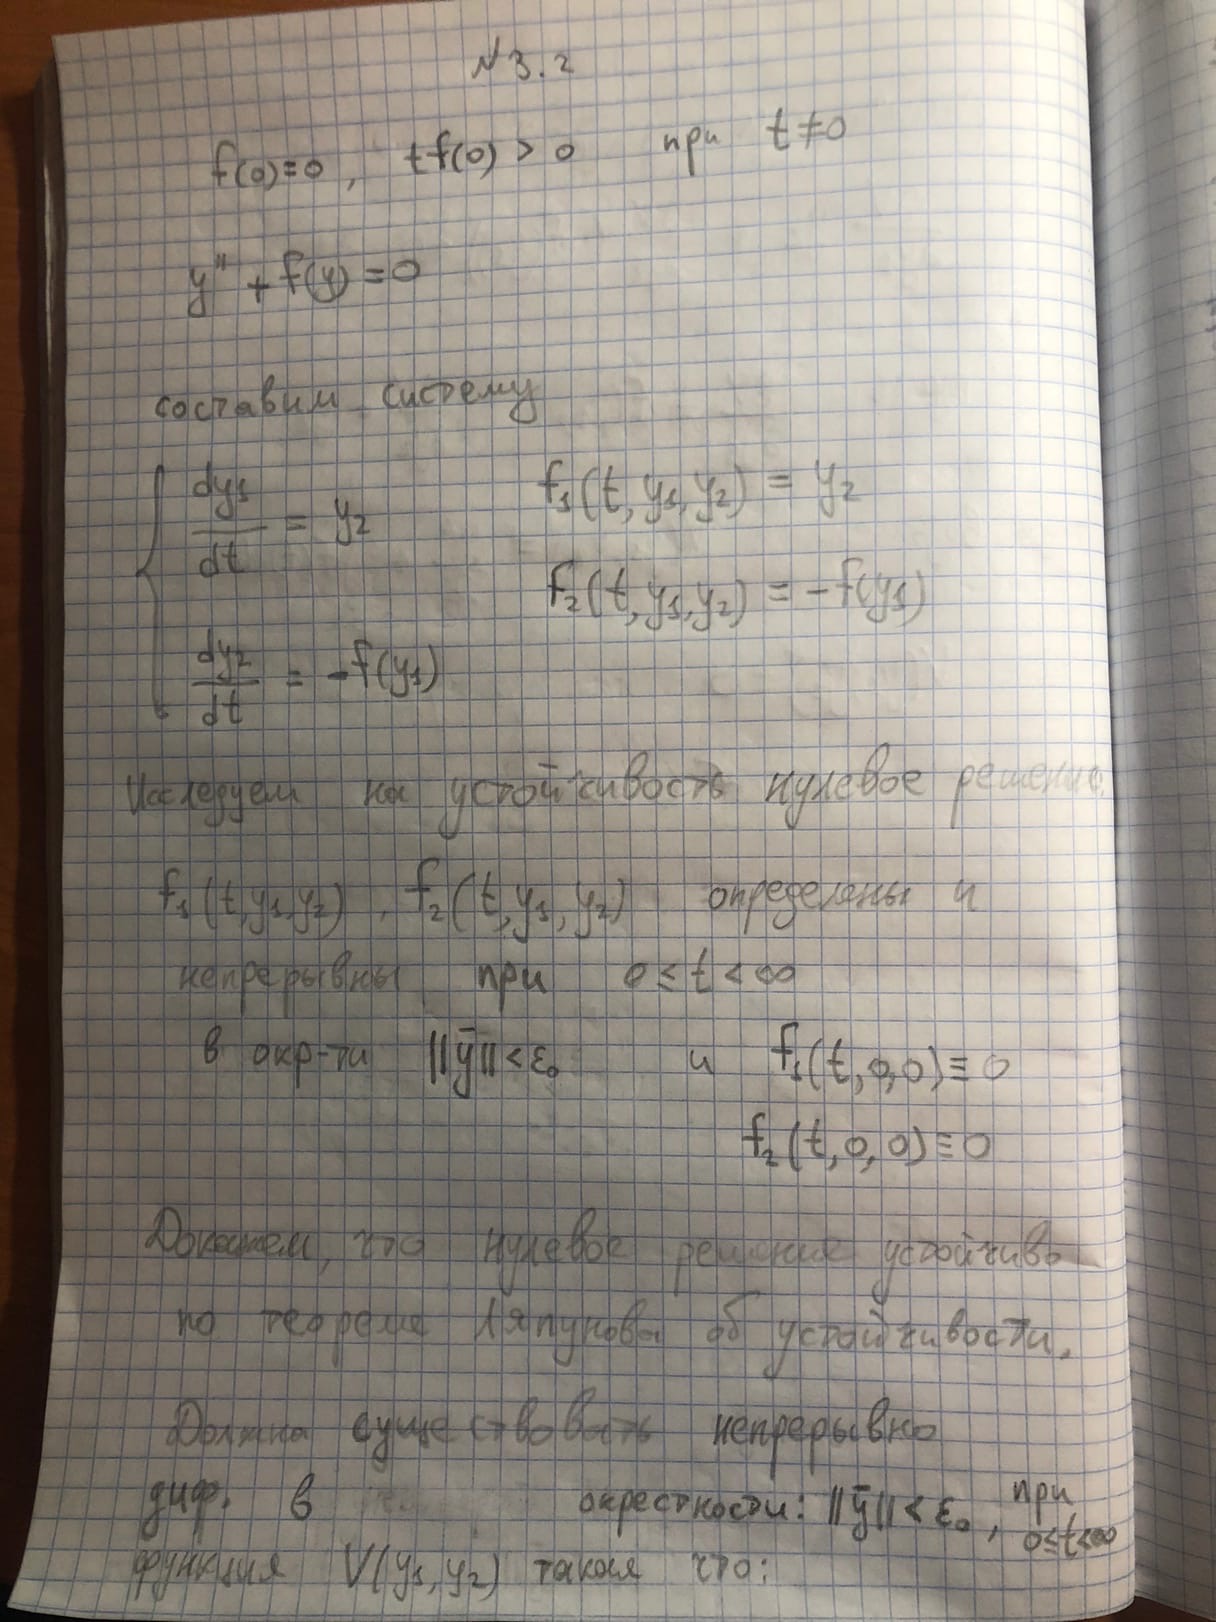 N 3.2
f(0)=0, tf(0) > 0 при t≠0
y'' + f(y) = 0
составим систему
dy₁/dt = y₂ f₁(t, y₁, y₂) = y₂
dy₂/dt = -f(y₁) f₂(t, y₁, y₂) = -f(y₁)
Исследуем на устойчивость нулевое решение.
f₁(t, y₁ y₂), f₂(t, y₁, y₂) определены и
непрерывны при 0 ≤ t < ∞
в окр-ти ||ȳ|| < ε₀ и f₁(t, 0, 0) ≡ 0
f₂(t, 0, 0) ≡ 0
Докажем, что нулевое решение устойчиво
по теореме Ляпунова об устойчивости.
Должна существовать непрерывно
диф. в окрестности: ||ȳ|| < ε₀, при
функция V(y₁, y₂) такая что: